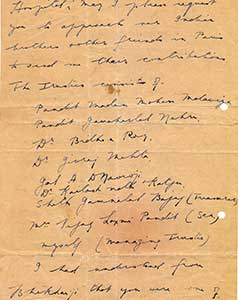 Hospital. May I please request
you to approach our Indian
brothers & other friends in Paris
to send us their contributions
The Trustees consists of.
Pandit Madan Mohan Malaviya
Pandit Jawaharlal Nehru.
Dr Bidhan Roy.
Dr. Jivraj Mehta.
A. D Naoroji
Dr Kailash nath Katju.
Sheth Jamnalal Bajaj (Treasurer)
Mrs Vijay Laxmi Pandit (Sec)
myself (managing Trustee)
I had understood from
that you were one of